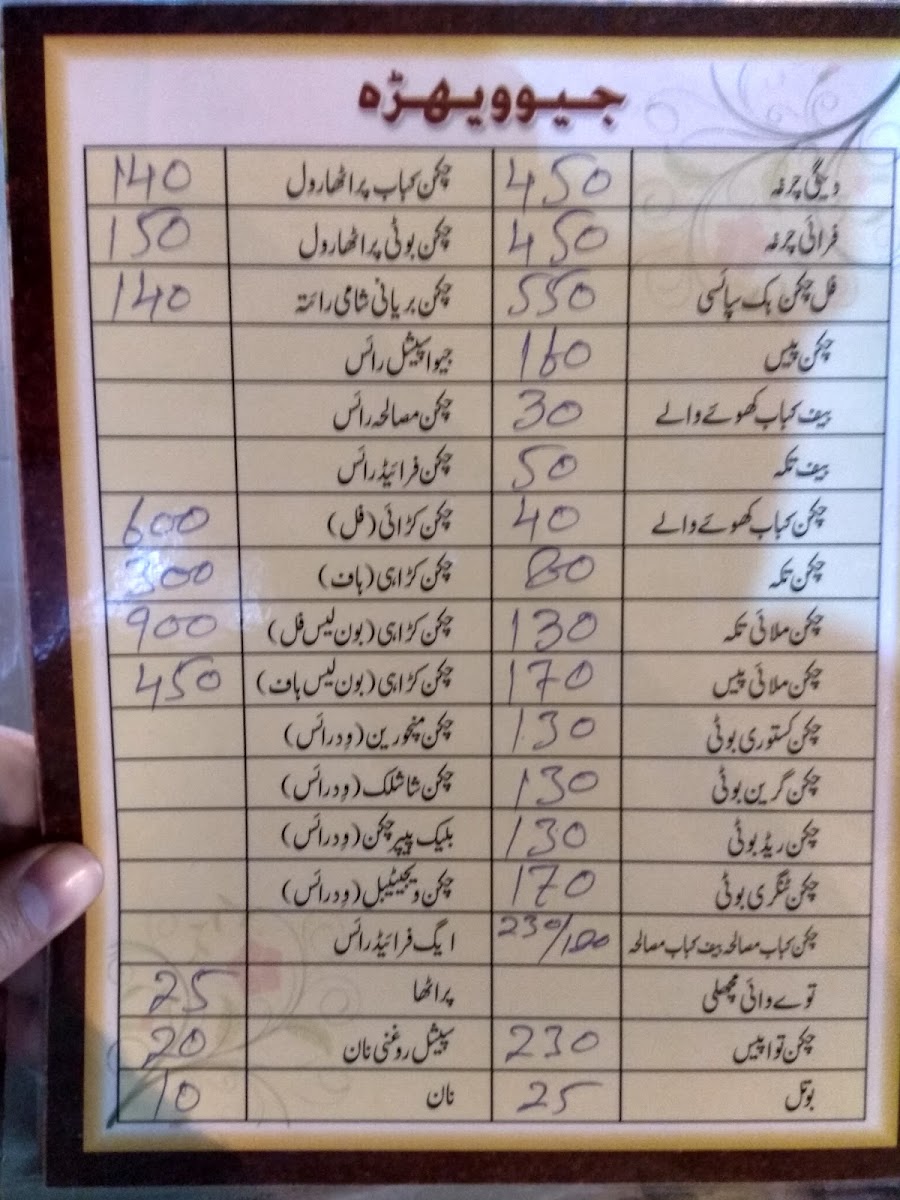 جیو ویہڑہ
دیگی چرغہ 450 چکن کباب پراٹھا رول 140
فرائی چرغہ 450 چکن بوٹی پراٹھا رول 150
فل چکن ہک سپائسی 550 چکن بریانی شامی رائتہ 140
چکن پیس 160 جیو اسپیشل رائس
بیف کباب کھوئے والے 30 چکن مصالحہ رائس
بیف تکہ 50 چکن فرائیڈ رائس
چکن کباب کھوئے والے 40 چکن کڑائی (فل) 600
چکن تکہ 80 چکن کڑاہی (ہاف) 300
چکن ملائی تکہ 130 چکن کڑاہی (بون لیس فل) 900
چکن ملائی پیس 170 چکن کڑاہی (بون لیس ہاف) 450
چکن کستوری بوٹی 130 چکن منچورین (وِد رائس)
چکن گرین بوٹی 130 چکن شاشلک (وِد رائس)
چکن ریڈ بوٹی 130 بلیک پیپر چکن (وِد رائس)
چکن ٹنگری بوٹی 170 چکن ویجیٹیبل (وِد رائس)
چکن کباب مصالحہ بیف کباب مصالحہ 230/180 ایگ فرائیڈ رائس
توے والی مچھلی پراٹھا 25
چکن توا پیس 230 سپیشل روغنی نان 20
بوتل 25 نان 10